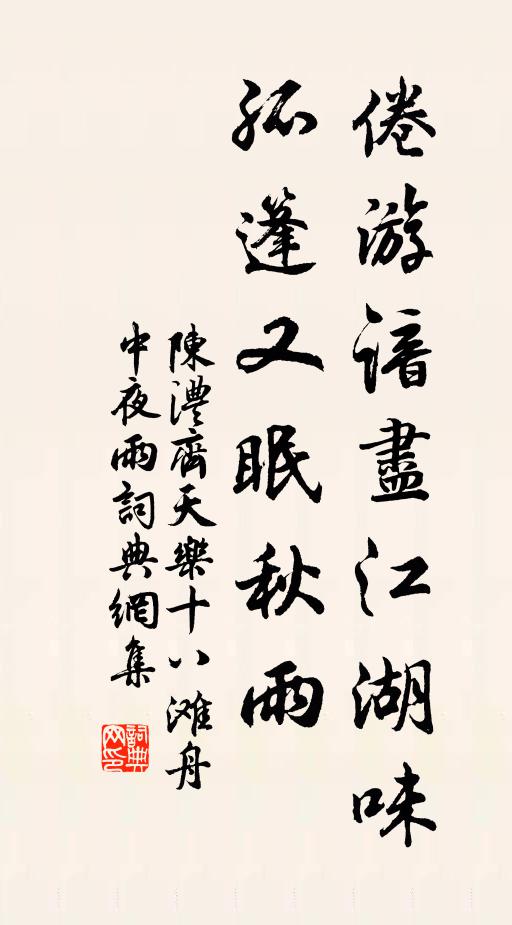 倦游諳盡江湖味
孤篷又眠秋雨
陳澧齊天樂十八滩舟
中夜雨詞典網集
詞典网印